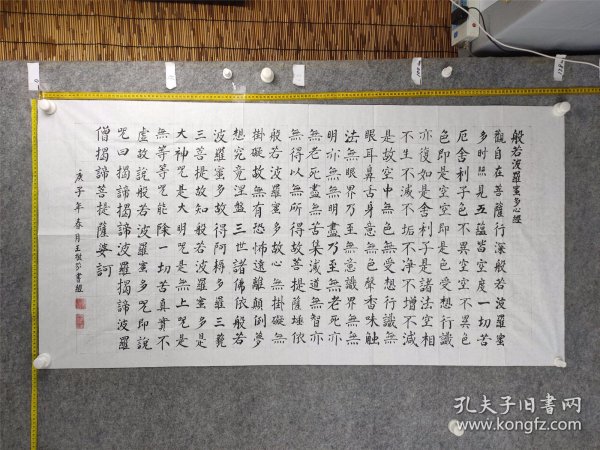 般若波羅蜜多心經
觀自在菩薩行深般若波羅蜜
多时照見五蕴皆空度一切苦
厄舍利子色不異空空不異色
色即是空空即是色受想行識
亦復如是舍利子是諸法空相
不生不滅不垢不净不增不減
是故空中無色無受想行識無
眼耳鼻舌身意無色聲香味触
法無眼界乃至無意識界無無
明亦無無明盡乃至無老死亦
無老死盡無苦集滅道無智亦
無得以無所得故菩提薩埵依
般若波羅蜜多故心無掛礙無
掛礙故無有恐怖遠離顛倒夢
想究竟涅盤三世諸佛依般若
波羅蜜多故得阿耨多羅三藐
三菩提故知般若波羅蜜多是
大神咒是大明咒是無上咒是
無等等咒能除一切苦真實不
虛故說般若波羅蜜多咒即說
咒曰揭諦揭諦波羅揭諦波羅
僧揭諦菩提薩婆訶
庚子年春月王書經
孔夫子旧書网
www.kongfz.com